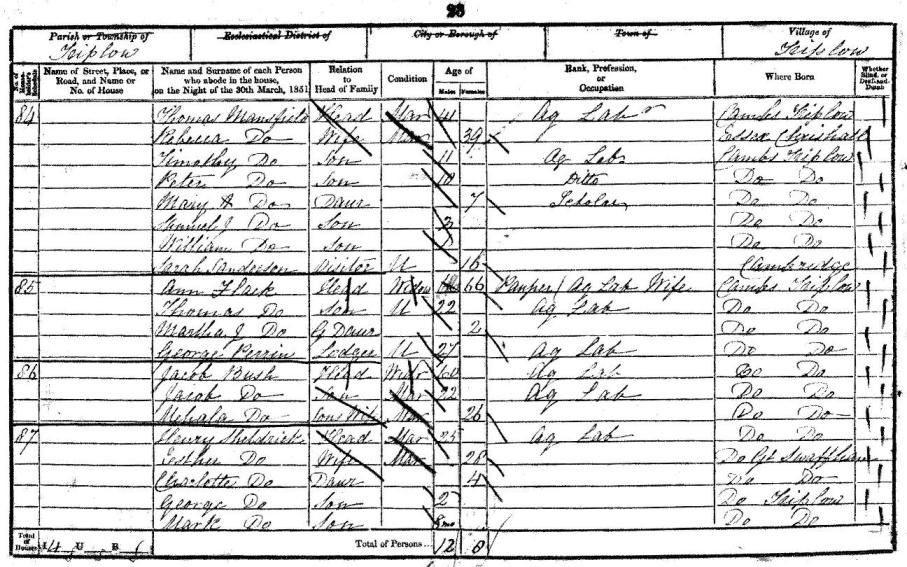 23
Parish or Township of Ecclesiastical District of City or Borough of Town of Village of
Triplow Triplow
Name of Street, Place, or Road, and Name or No. of House
Name and Surname of each Person who abode in the house, on the Night of the 30th March, 1851
Relation to Head of Family
Condition
Age of
Males Females
Rank, Profession, or Occupation
Where Born
Whether Blind, or Deaf-and-Dumb
84 Thomas Mansfield Head Mar 41 Ag Lab Cambs Triplow
Rebecca Do Wife Mar 39 Essex Chrishall
Timothy Do Son 11 Ag Lab Cambs Triplow
Peter Do Son 10 Ditto Do Do
Mary A Do Daur 7 Scholar Do Do
Samuel J Do Son 3 Do Do
William Do Son Do Do
Sarah Sanderson Visitor U 16 Cambridge
85 Ann Flack Head Widow 66 Pauper / Ag Lab Wife Cambs Triplow
Thomas Do Son U 22 Ag Lab Do Do
Martha J Do G Daur 2 Do Do
George Perrin Lodger U 27 Ag Lab Do Do
86 Jacob Bush Head Widr 60 Ag Lab Do Do
Jacob Do Son Mar 22 Ag Lab Do Do
Do Sons Wife Mar 26 Do Do
87 Henry Sheldrick Head Mar 25 Ag Lab Do Do
Esther Do Wife Mar 28 Do Gt Swaffham
Charlotte Do Daur 4 Do Do
George Do Son 2 Do Triplow
Mark Do Son 8 mo Do Do
Total of Houses 4 U B Total of Persons... 12 8